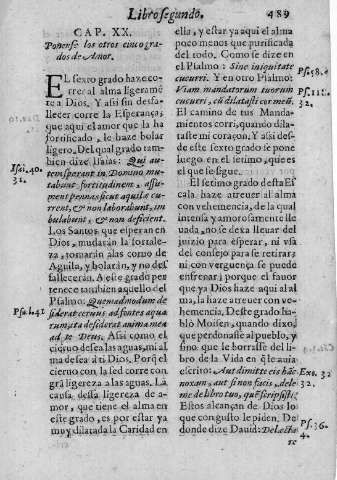 Libro segundo. 489
CAP. XX.
Ponense los otros cinco gra-
dos de Amor.
EL sexto grado haze co-
rrer al alma ligeramẽ
te a Dios. Y assi sin desfa-
llecer corre la Esperança;
que aqui el amor que la ha
fortificado, le haze bolar
ligero. Del qual grado tam-
bien dize Isaias: Qui au-
tem sperant in Domino mu-
tabunt fortitudinem, assu-
ment pennas sicut aquilæ cur-
rent, & non laborabunt, am
bulabunt, & non deficient.
Los Santos que esperan en
Dios, mudarán la fortale-
za, tomarán alas como de
Aguila, y bolarán, y no des
fallecerán. A este grado per
tenece tambien aquello del
Psalmo: Quemadmodum de
siderat ceruus ad fontes aqua
rum, ita desiderat anima mea
ad te Deus. Assi como el
cieruo desea las aguas, mi al
ma desea a ti Dios. Porq̃ el
cieruo con la sed corre con
grã ligereza a las aguas. La
causa dessa ligereza de a-
mor, que tiene el alma en
este grado, es por estar ya
muy dilatada la Caridad en
Isai. 40.
31.
Psa. 41
ella, y estar ya aqui el alma
poco menos que purificada
del todo. Como se dize en
el Psalmo: Sine iniquitate
cucurri. Y en otro Psalmo:
Viam mandatorum tuorum
cucurri, cũ dilatasti cor meũ.
El camino de tus Manda-
mientos corri, quando dila-
taste mi coraçon. Y assi des-
de este sexto grado se pone
luego en el setimo, que es
el que se sigue.
El setimo grado desta Es
cala haze atreuer al alma
con vehemencia, de la qual
intensa y amorosamente lle
uada, no se dexa lleuar del
juizio para esperar, ni vsa
del consejo para se retirar,
ni con verguença se puede
enfrenar; porque el fauor
que ya Dios haze aqui al al
ma, la haze atreuer con ve-
hemencia. Deste grado ha-
blò Moisen, quando dixo,
que perdonasse al pueblo, y
sino que le borrasse del li-
bro de la Vida en q̃ le auia
escrito: Aut dimitte eis hãc
noxam, aut si non facis, dele
me de libro tuo, quẽ scripsisti.
Estos alcançan de Dios lo
que con gusto le piden. De
donde dize Dauid: Delecta-
re
Ps. 58.
Ps. 118.
32.
Exo. 32
32.
Ps. 36.
4.